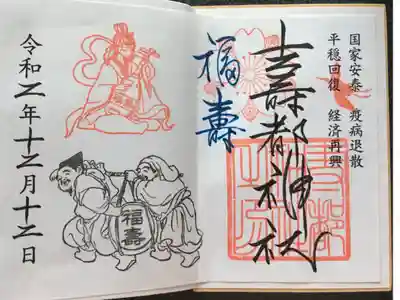 国家安泰 疫病退散
平穏回復 経済再興
壽都神社
福壽
令和二年十二月十二日
福壽